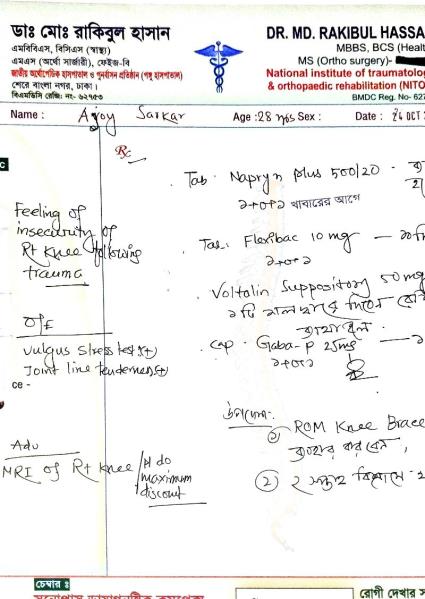 ডাঃ মোঃ রাকিবুল হাসান
এমবিবিএস, বিসিএস (স্বাস্থ্য)
এমএস (অর্থো সার্জারী), ফেইজ-বি
জাতীয় অর্থোপেডিক হাসপাতাল ও পুনর্বাসন প্রতিষ্ঠান (পঙ্গু হাসপাতাল)
শেরে বাংলা নগর, ঢাকা।
বিএমডিসি রেজিঃ নং- ৬২৭৫৩
DR. MD. RAKIBUL HASSA
MBBS, BCS (Healt
MS (Ortho surgery)-
National institute of traumatolog
& orthopaedic rehabilitation (NITO
BMDC Reg. No- 627
Name : Ajoy Sarkar Age :28 yrs Sex : Date : 24 OCT
Rx
Feeling of
insecurity of
Rt Knee following
trauma
O/E
Vulgus stress test (+)
Joint line tenderness (+)
ce -
Adv
MRI of Rt Knee / Pl do
maximum
discount
Tab. Napryn plus 500/20 -
১+০+১ খাবারের আগে
Tab. Flexibac 10 mg —
১+০+১
Voltalin Suppository 50 mg
১ টি
Cap. Gaba-P 25mg —
১+০+১
উপদেশ:
১) ROM Knee Brace
ব্যবহার করবেন,
২) ২ সপ্তাহ বিশ্রামে
চেম্বার ঃ
রোগী দেখার স